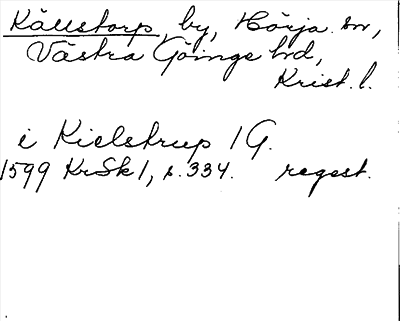 Källstorp, by, Hörja sn,
Västra Göinge hd,
Krist. l.
i Kielstrup 1 G.
1599 KrSk 1, s. 334. regest.